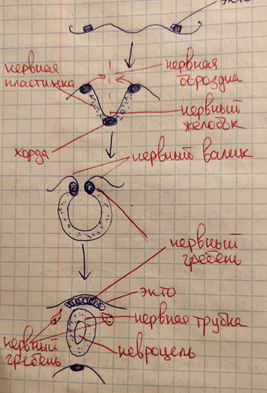 экто
нервная
пластинка
нервная
бороздка
нервный
желобок
хорда
нервный валик
нервный
гребень
экто
нервная трубка
нервный
гребень
невроцель